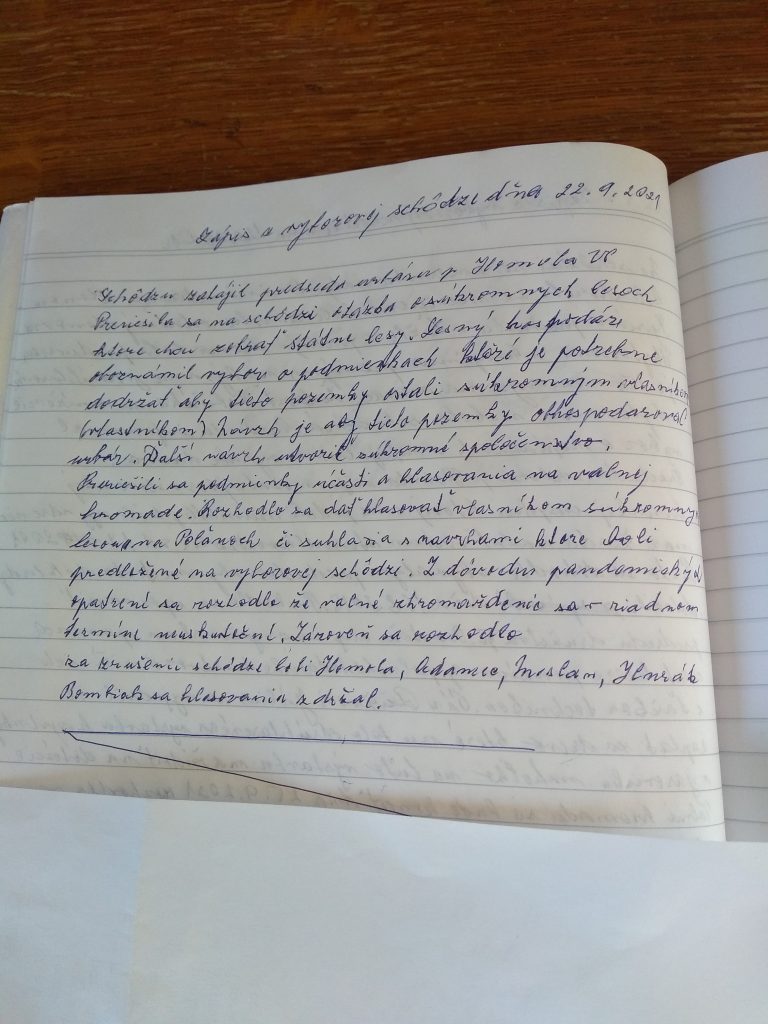 Zápis z vyborovej schôdze dňa 22.9.2021
Schôdzu zahájil predseda urbáru p. Homola Vl
Preriešila sa na schôdzi otázka o súkromnych lesoch
ktore chcú zobrať štátne lesy. Lesný hospodár
oboznámil vybor o podmienkach ktoré je potrebne
dodržať aby tieto pozemky ostali súkromným vlasnikom
(vlastníkom) Návrh je aby tieto pozemky obhospodaroval
urbár. Ďalší návrh utvoriť súkromné spoločenstvo.
Preriešili sa podmienky účasti a hlasovania na valnej
hromade. Rozhodlo sa dať hlasovať vlasníkom súkromny
lesov na Polánoch či suhlasia s navrhami ktore boli
predložené na vyborovej schôdzi. Z dôvodu pandomických
opatrení sa rozhodlo že valné zhromaždenie sa v riadnom
termíne neuskutoční. Zároveň sa rozhodlo
za zrušenie schôdze boli Homola, Adamec,
Bombiak sa hlasovania zdržal.